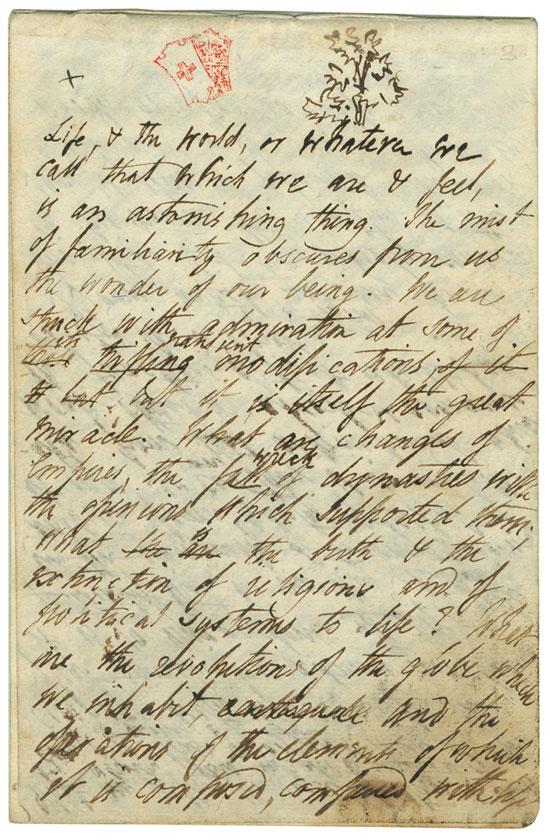 Life, & the world, or whatever we
call that which we are & feel,
is an astonishing thing. The mist
of familiarity obscures from us
the wonder of our being. We are
struck with admiration at some of
its transient
trifling modifications of it
but it is itself the great
miracle. What are changes of
wreck
Empires, the fall of dynasties with
the opinions which supported them;
what is the birth & the
extinction of religions and of
political systems to life? What
are the revolutions of the globe which
we inhabit, and the
operations of the elements of which
it is composed, compared with life